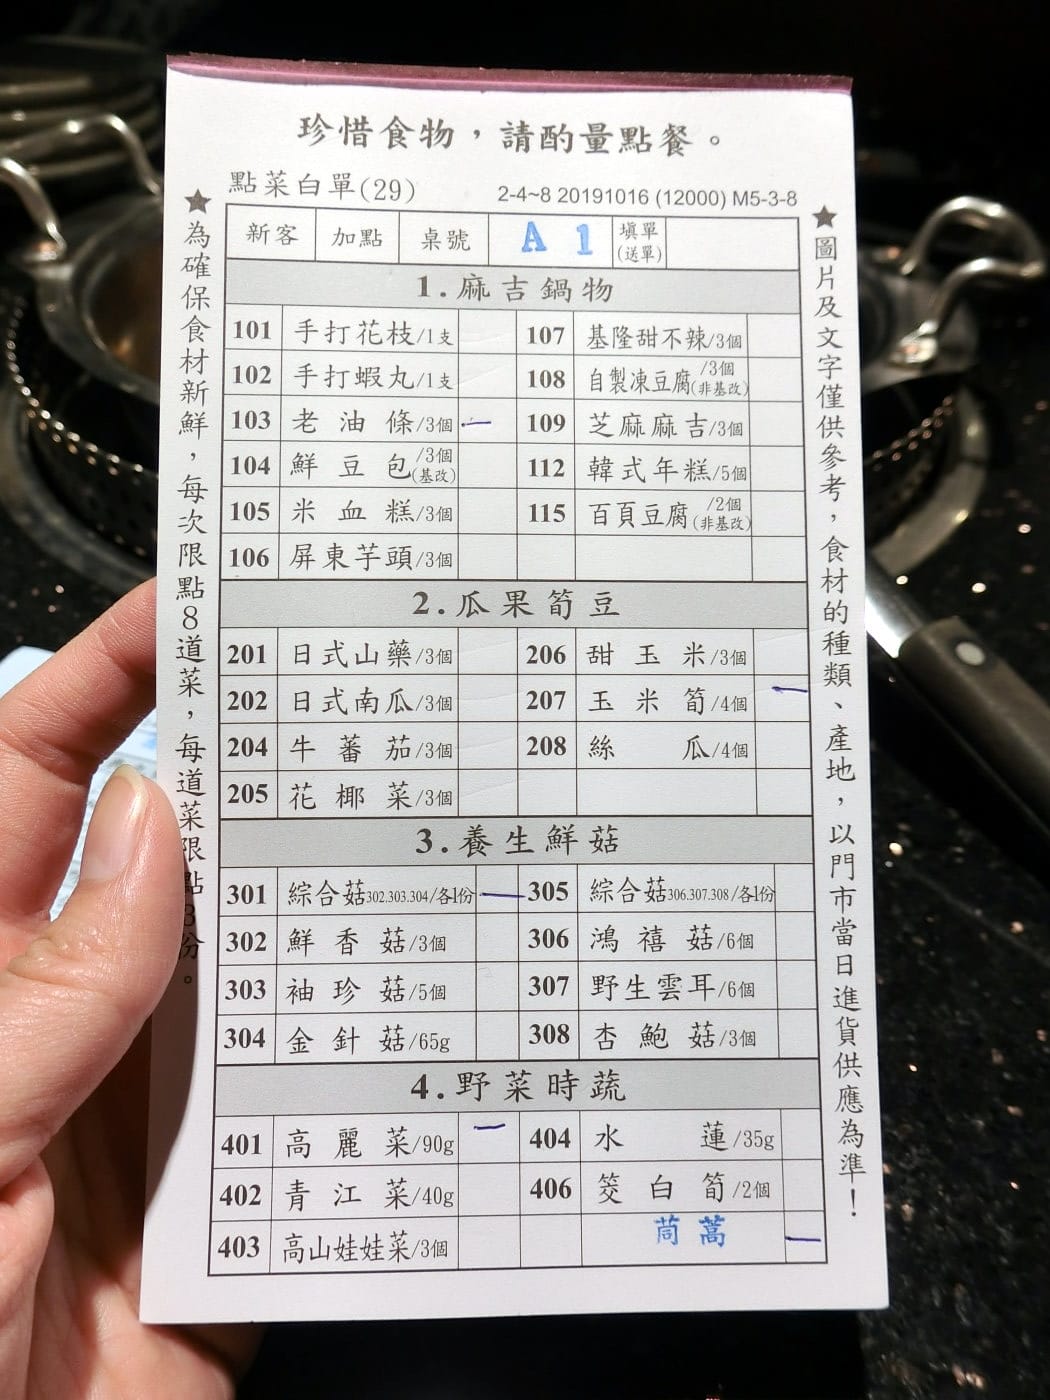 珍惜食物，請酌量點餐。
點菜白單(29) 2-4~8 20191016 (12000) M5-3-8
★為確保食材新鮮，每次限點8道菜，每道菜限點3份。
新客 加點 桌號 A 1 填單(送單)
1.麻吉鍋物
101 手打花枝/1支 107 基隆甜不辣/3個
102 手打蝦丸/1支 108 自製凍豆腐/3個(非基改)
103 老油條/3個 一 109 芝麻麻吉/3個
104 鮮豆包/3個(基改) 112 韓式年糕/5個
105 米血糕/3個 115 百頁豆腐/2個(非基改)
106 屏東芋頭/3個
2.瓜果筍豆
201 日式山藥/3個 206 甜玉米/3個
202 日式南瓜/3個 207 玉米筍/4個 一
204 牛蕃茄/3個 208 絲瓜/4個
205 花椰菜/3個
3.養生鮮菇
301 綜合菇302.303.304/各1份 一 305 綜合菇306.307.308/各1份
302 鮮香菇/3個 306 鴻禧菇/6個
303 袖珍菇/5個 307 野生雲耳/6個
304 金針菇/65g 308 杏鮑菇/3個
4.野菜時蔬
401 高麗菜/90g 一 404 水蓮/35g
402 青江菜/40g 406 筊白筍/2個
403 高山娃娃菜/3個 茼蒿 一
★圖片及文字僅供參考，食材的種類、產地，以門市當日進貨供應為準！